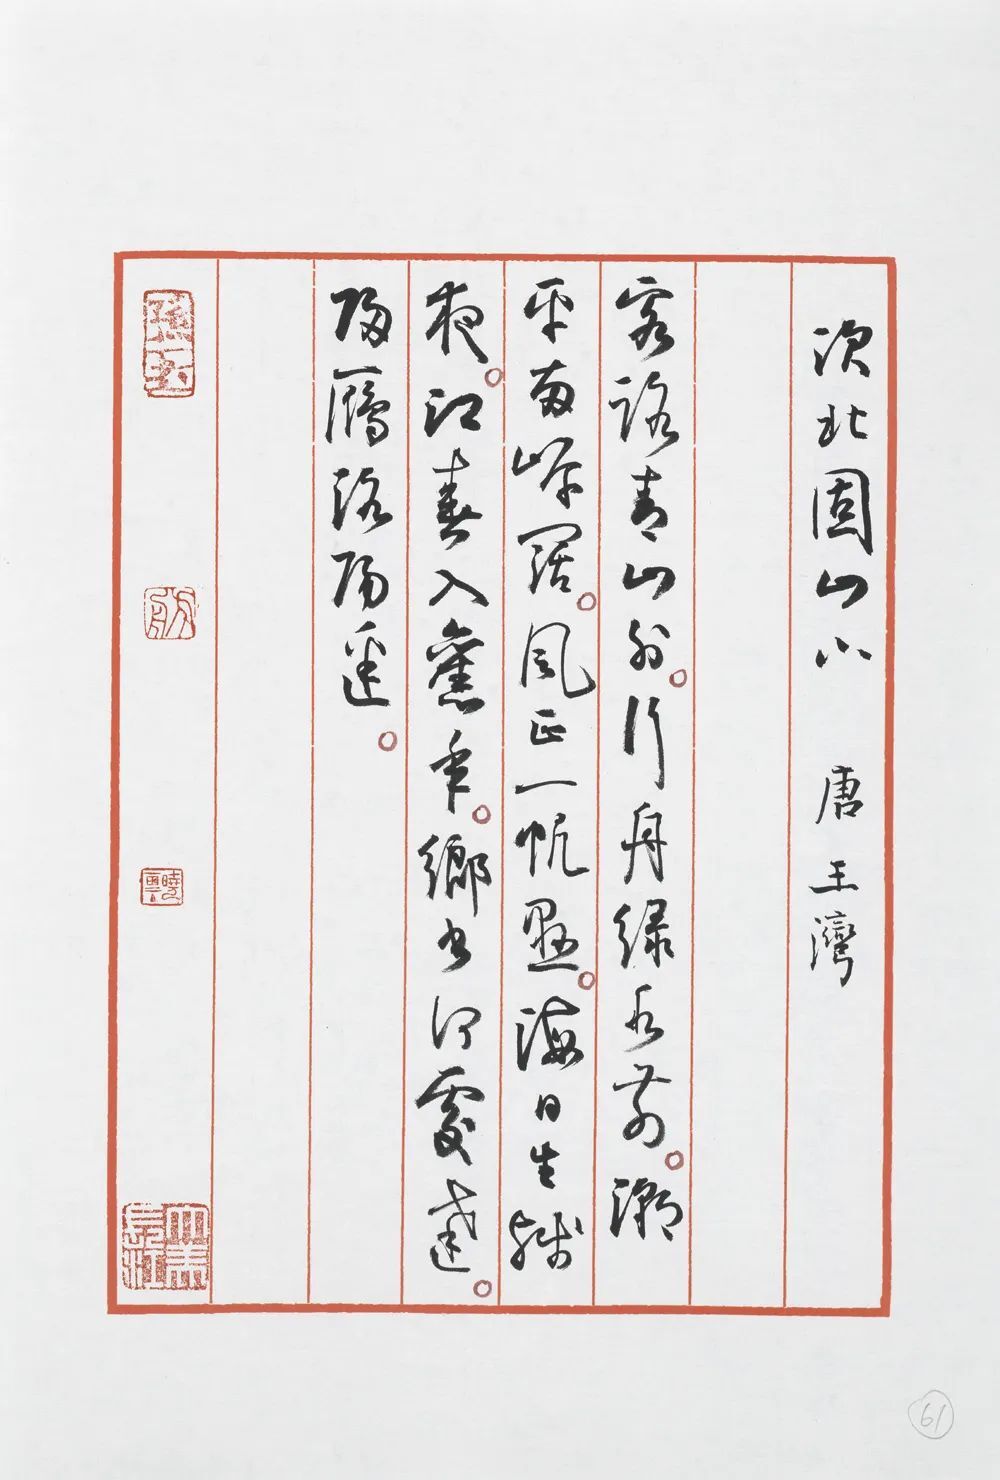 次北固山下 唐 王灣
客路青山外。行舟綠水前。潮
平兩岸闊。風正一帆懸。海日生殘
夜。江春入舊年。鄉書何處達。
歸鴈洛陽邊。
61